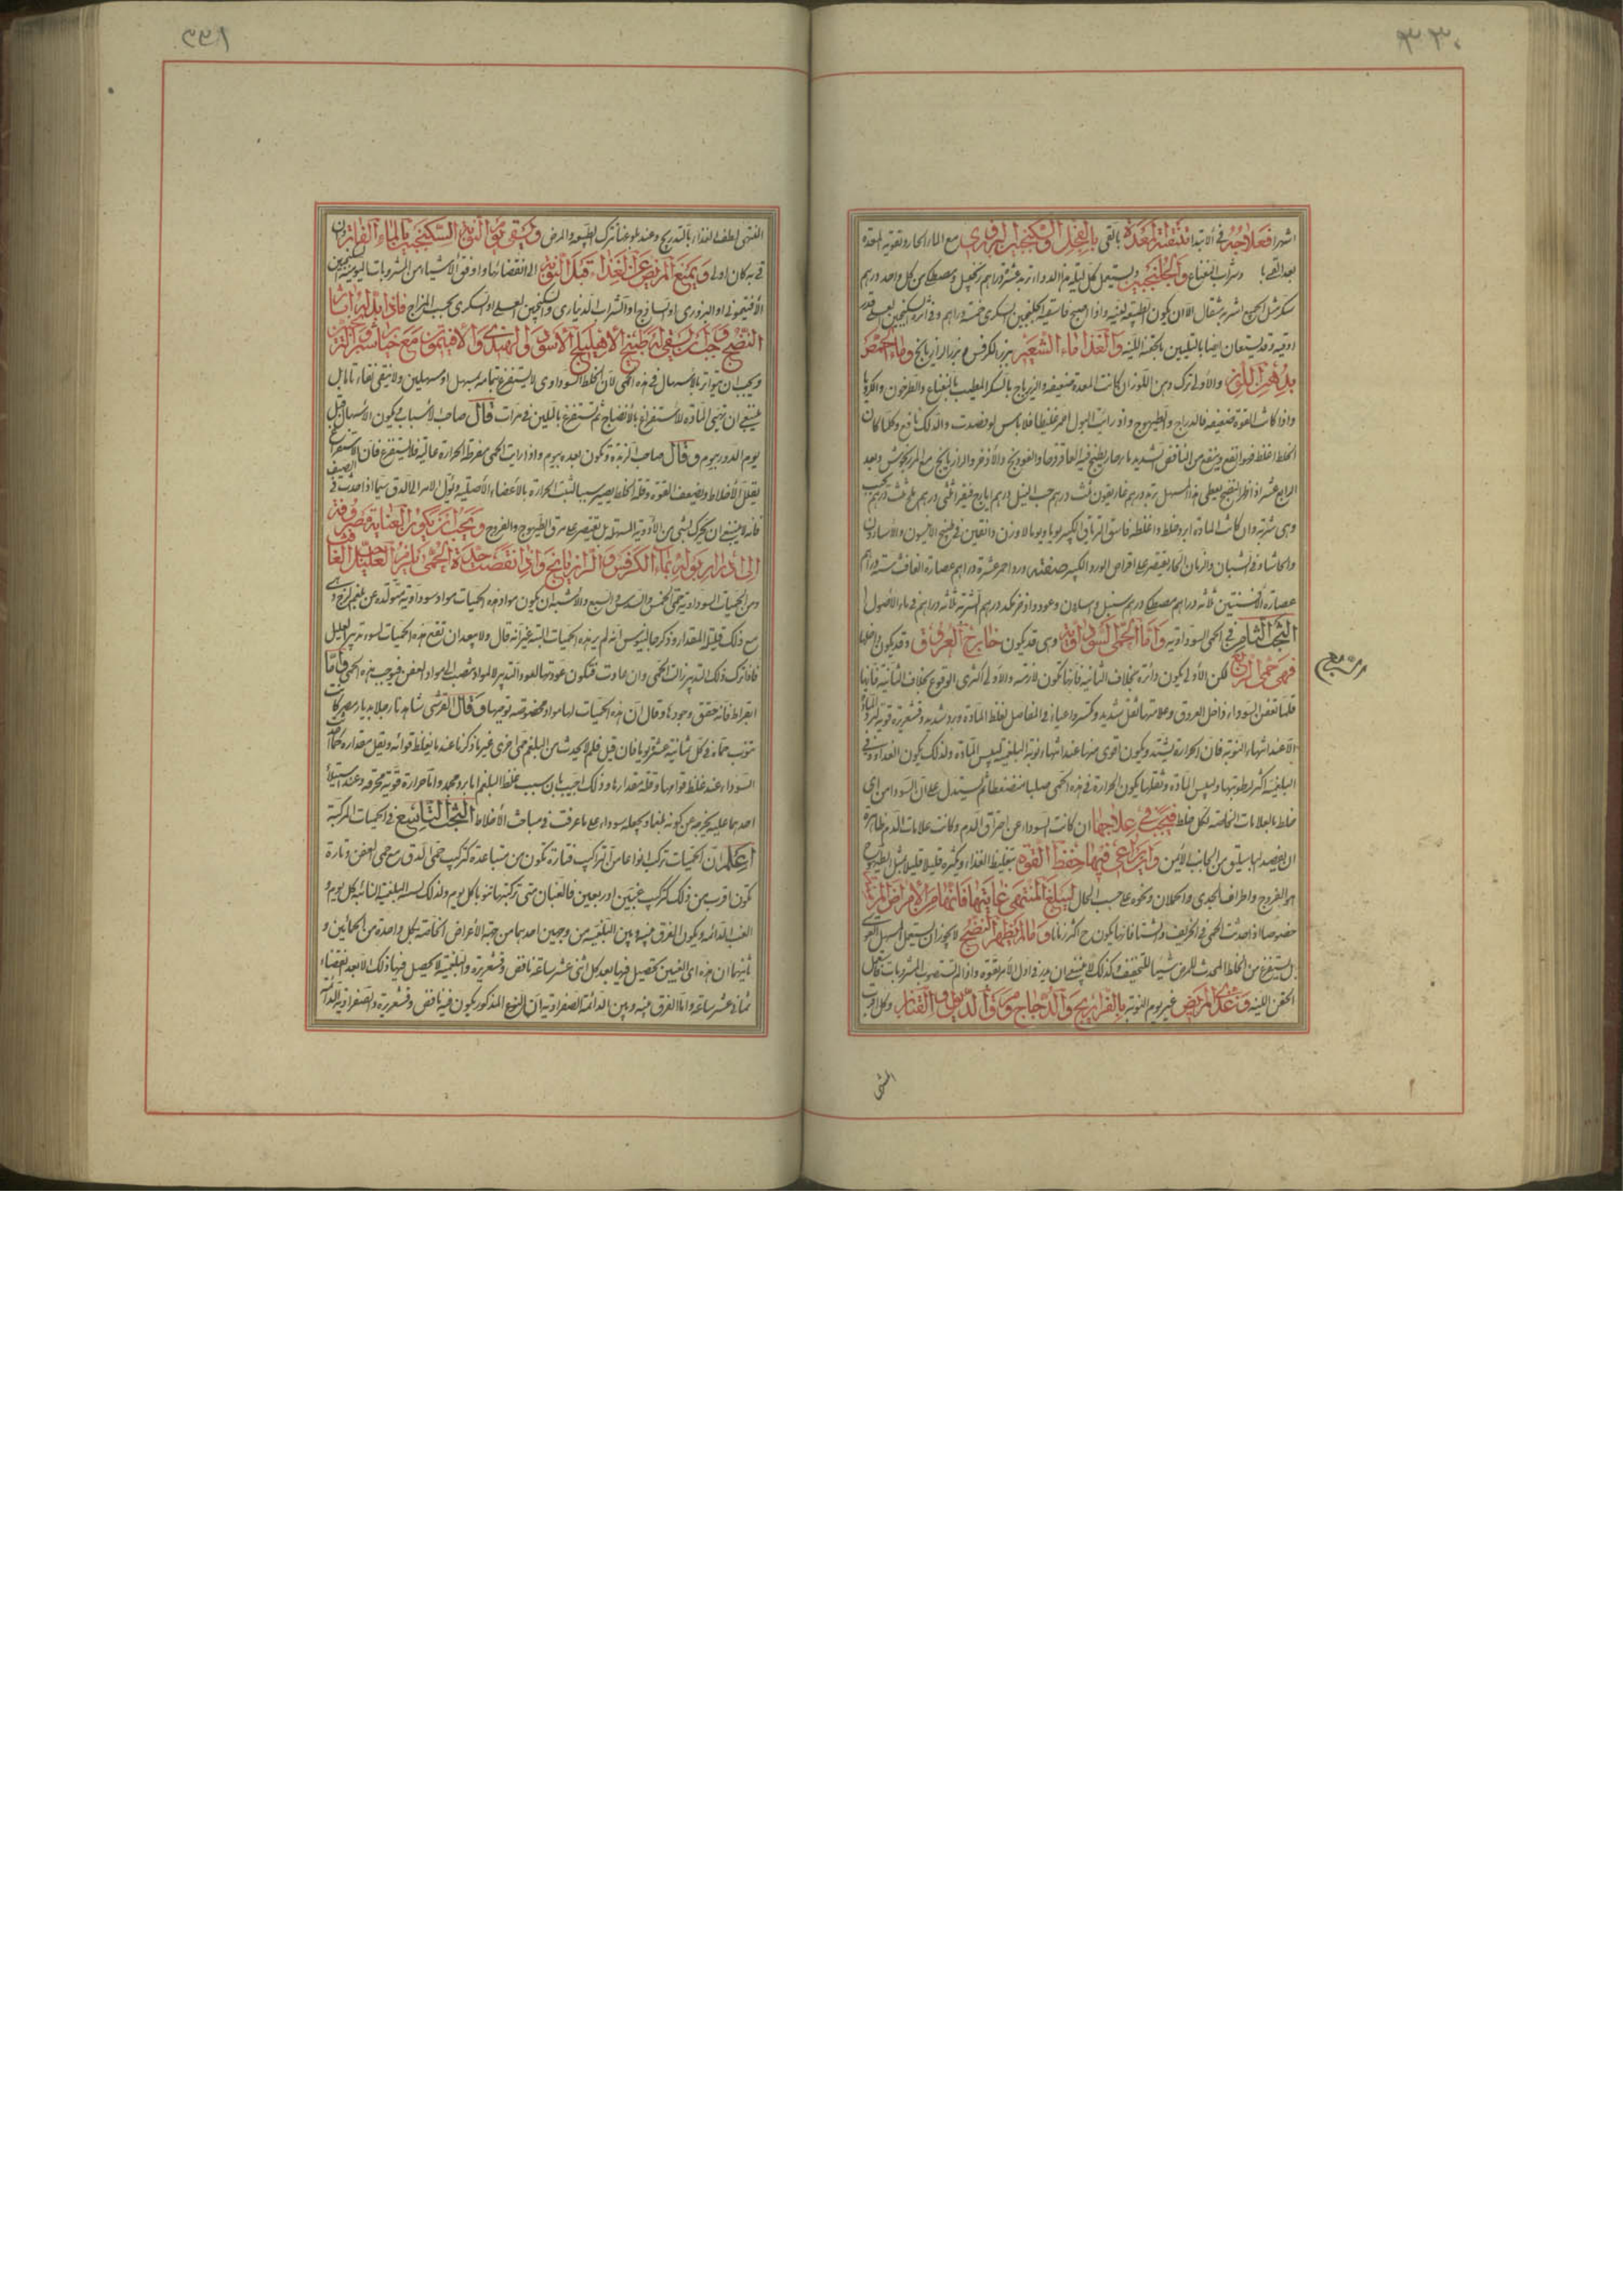 ٣٣٠
اشهر فعلاجه في الابتداء تنقية المعدة بالقي بالفجل والسكنجبين البزوري مع الماء الحار وتقوية المعدة
بعد القي بشراب النعناع والجلنجبين ويستعمل كل ليلة هذا الدواء تربد عشرة دراهم زنجبيل ومصطكي من كل واحد درهم
سكر مثل الجميع الشربة مثقال الا ان يكون الطبيعة لينة واذا اصبح فاسقيه الجلنجبين السكري خمسة دراهم وفي اثره السكنجبين العسلي قدر
اوقية وقد يستعان ايضا بالتليين بالحقنة اللينة والغذاء ماء الشعير ببزر الكرفس وبزر الرازيانج وماء الحمص
بدهن اللوز والاولى ترك دهن اللوز ان كانت المعدة ضعيفة والزيرباج بالسكر المطيب بالنعناع والطرخون والكرويا
واذا كانت القوة ضعيفة فالدراج والطيهوج واذا رايت البول احمر غليظا فلا باس لو فصدت والدلك نافع وكلما كان
الخلط اغلظ فهو انفع وينفع من النافض الشديد ماء حار يطبخ فيه العاقرقرحا والفودنج والاذخر والرازيانج مع المرزنجوش وبعد
الرابع عشر اذا ظهر النضج يعطى هذا المسهل تربد درهم غاريقون ثلث درهم حب النيل درهم ايارج فيقرا ثلثي درهم ملح ثلث درهم يحبب
وهي شربة وان كانت المادة ابرد خلطا واغلظ فاسق الترياق الكبير يوما ويوما لا وزن دانقين في طبيخ الانيسون والاسارون
والحاشا وفي الشبان والزمان الحار يقتصر على اقراص الورد الكبير صنعته ورد احمر عشرة دراهم عصارة الغافت ستة دراهم
عصارة الافسنتين ثلثة دراهم مصطكي درهم سنبل وسليخة وعود واذخر لكل درهم الشربة ثلثة دراهم في ماء الاصول
البحث الثامن في الحمى السوداوية واما الحمى السوداوية وهي قد يكون خارج العروق وقد يكون داخلها
فهي حمى الربع لكن الاولى يكون دائرة بخلاف الثانية فانها تكون لازمة والاولى اكثري الوقوع بخلاف الثانية فانها
قلما تعفن السوداء داخل العروق وعلامتها ثقل شديد وتكسر واعياء في المفاصل لغلظ المادة وبرد شديد وقشعريرة قوية لبرد المادة
الا عند انتهاء النوبة فان الحرارة يشتد ويكون اقوى منها عند انتهاء نوبة البلغمية ليبس المادة ولذلك يكون العداوة في
البلغمية اكثر لرطوبتها وليبس المادة وثقلها يكون الحرارة في هذه الحمى صلبا منضغطا ثم يستدل على ان السوداء من اي
خلط بالعلامات الخاصة لكل خلط فيجب في علاجها ان كانت السوداء عن احتراق الدم وكانت علامات الدم ظاهرة
ان يفصد لها باسليق من الجانب الايمن وان يراعى فيها حفظ القوة بتغليظ الغذاء وتكثيره قليلا قليلا مثل الطيهوج
والفروج واطراف الجدي والحملان ونحوه على حسب الحال ليبلغ المنتهى غايتها فانها من الامراض المزمنة
خصوصا اذا حدثت الحمى في الخريف والشتاء فانها يكون ح اكثر زمانا وما لم يظهر النضج لا يجوز ان يستعمل المسهل القوي
بل يستفرغ من الخلط المحدث للمرض شيئا للتخفيف وكذلك لا ينبغي ان يدر في اول الامر بقوة واذا لم تستصوب المشروبات فاستعمل
الحقن اللينة وتغذى المريض غير يوم النوبة بالفراريج والدجاج ومرق الديوك والقنابر وكل اقرب
البحث
المنتهى
٣٣١
المنتهى لطف الغذاء بالتدريج وعند بلوغها ترك الطبيعة والمرض وسقي يوم النوبة السكنجبين بالماء الفاتر وان
قي به كان اولى ويمنع المريض عن الغذاء قبل النوبة الى انقضائها واوفق الاشياء من المشروبات اليومية السكنجبين
الافتيموني او البزوري او الساذج او الشراب الديناري والسكنجبين العسلي او السكري بحسب المزاج فاذا بدا لها اثار
النضج وجب ان يسقى له طبيخ الاهليلج الاسود والهندي والافتيمون مع خيارشنبر والترنجبين
ويجب ان يتواتر بالاسهال في هذه الحمى لان الخلط السوداوي لا يستفرغ بتمامه بمسهل او مسهلين ولا ينقى نقاء تاما بل
ينبغي ان تهيئ المادة للاستفراغ بالانضاج ثم تستفرغ بالتليين في مرات قال صاحب الاسباب يكون الاسهال قبل
يوم الدور بيوم وقال صاحب الزبدة ويكون بعده بيوم واذا رايت الحمى مفرطة الحرارة عالية فلا تستفرغ فان الاستفراغ
يقلل الاخلاط ويضعف القوة وقلة الخلط يصير سببا لتشبث الحرارة بالاعضاء الاصلية ويؤل الامر الى الدق سيما اذا حدثت في الصيف
فانه لا ينبغي ان يحرك بشي من الادوية المسهلة بل تقتصر على مرق الطيهوج والفروج ويجب ان يكون العناية مصروفة
الى ادرار بوله بماء الكرفس والرازيانج واذا انقضت مدة الحمى يلزم العليل حب الغافت
ومن الحميات السوداوية حمى الخمس والسدس والسبع والاشبه ان يكون مواد هذه الحميات مواد سوداوية متولدة عن بلغم لزج وهي
مع ذلك قليلة المقدار وذكر جالينوس انه لم ير هذه الحميات البتة غير انه قال ولا يبعد ان تقع هذه الحميات لسوء تدبير العليل
فاذا ترك ذلك التدبير زالت الحمى وان عاودت فتكون عودتها لعود التدبير لا لمواد تنصب الى مواد بعفن فيوجب هذه الحمى واما
ابقراط فانه حقق وجودها وقال ان هذه الحميات لها مواد مخصوصة توجبها وقال القرشي شاهدنا رجلا بديار مصر كانت
تنوب حماه في كل ثمانية عشر يوما فان قيل فلم لا يحدث من البلغم حمى اخرى غير ما ذكرنا عندما يغلظ قوامه ويقل مقداره كما يحدث
السوداء عند غلظ قوامها وقلة مقدارها وذلك اجيب بان سبب غلظ البلغم اما برد مجمد واما حرارة قوية محرقة وعند استيلاء
احدهما عليه يخرجه عن كونه بلغما ويجعله سوداء على ما عرفت في مباحث الاخلاط البحث التاسع في الحميات المركبة
اعلم ان الحميات تركب انواعا من التراكيب فتارة تكون من متباعدة كتركيب حمى الدق مع حمى العفن وتارة
تكون اقرب من ذلك كتركيب غبين او ربعين فالغبان متى تركبتا نابتا كل يوم ولذلك يشبه البلغمية النائبة كل يوم و
الغب الدائمة ويكون الفرق بينه وبين البلغمية من وجهين احدهما من جهة الاعراض الخاصة بكل واحدة من الحمائين و
ثانيهما ان هذه اعني الغبين يحصل فيها بعد كل اثنى عشر ساعة نافض وقشعريرة والبلغمية لا يحصل فيها ذلك الا بعد انقضاء
ثماني عشر ساعة واما الفرق بينه وبين الدائمة الصفراوية ان النوع المذكور يكون فيه نافض وقشعريرة والصفراوية الدائمة